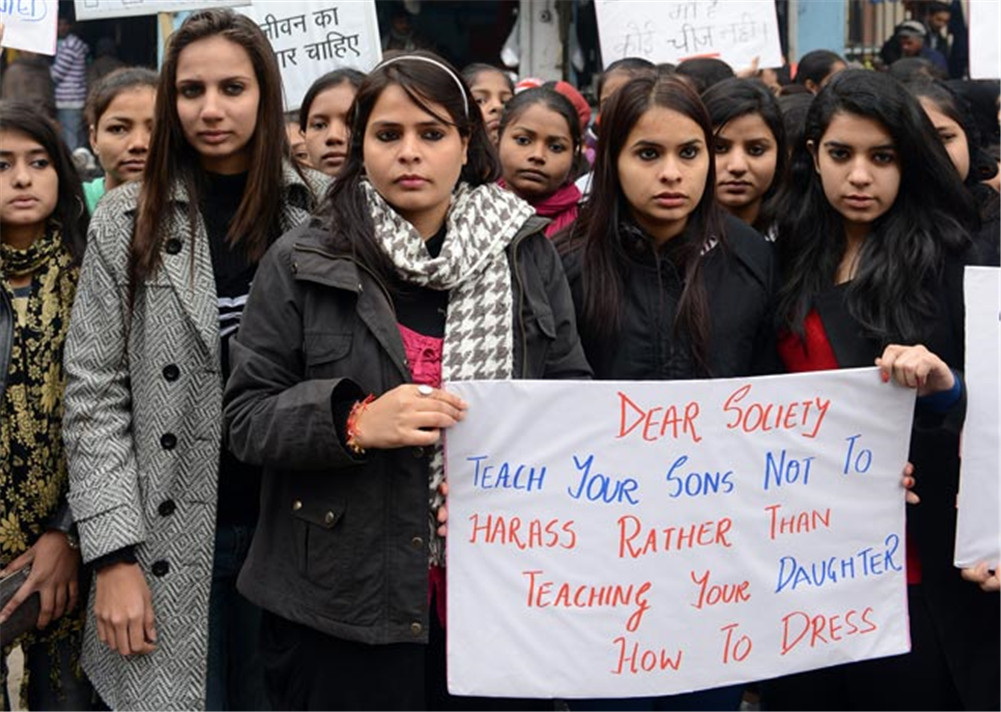 जीवन का
चाहिए
कोई चीज नहीं
DEAR SOCIETY
TEACH YOUR SONS NOT TO
HARASS RATHER THAN
TEACHING YOUR DAUGHTER
HOW TO DRESS